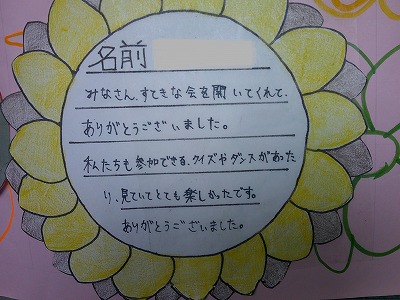 名前
みなさん、すてきな会を開いてくれて、
ありがとうございました。
私たちも参加できる、クイズやダンスがあった
り、見ていてとても楽しかったです。
ありがとうございました。